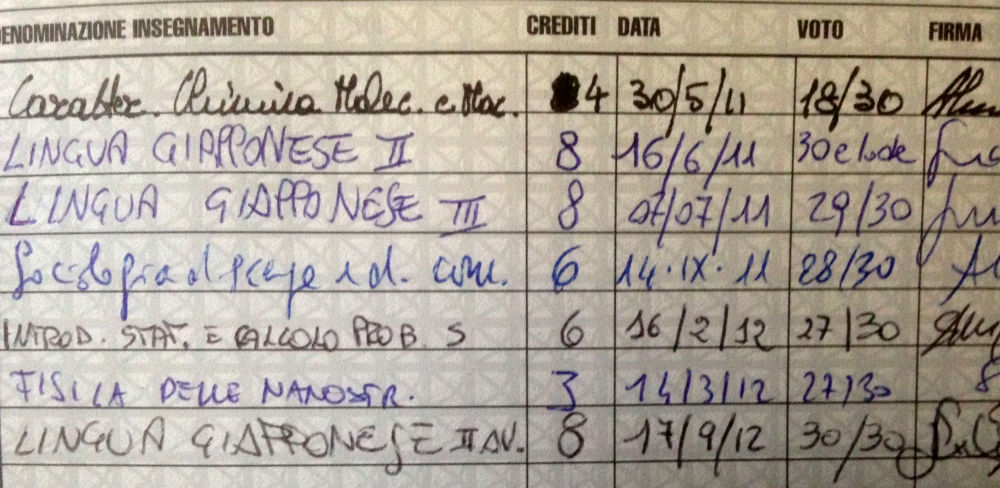 DENOMINAZIONE INSEGNAMENTO CREDITI DATA VOTO FIRMA
Caratter. Chimica Molec. e Mac. 4 30/5/11 18/30
LINGUA GIAPPONESE II 8 16/6/11 30 e lode
LINGUA GIAPPONESE III 8 07/07/11 29/30
Sociologia d. 6 14·IX·11 28/30
INTROD. STAT. E CALCOLO PROB. S 6 16/2/12 27/30
FISICA DELLE NANOSTR. 3 14/3/12 27/30
LINGUA GIAPPONESE II AV. 8 17/9/12 30/30